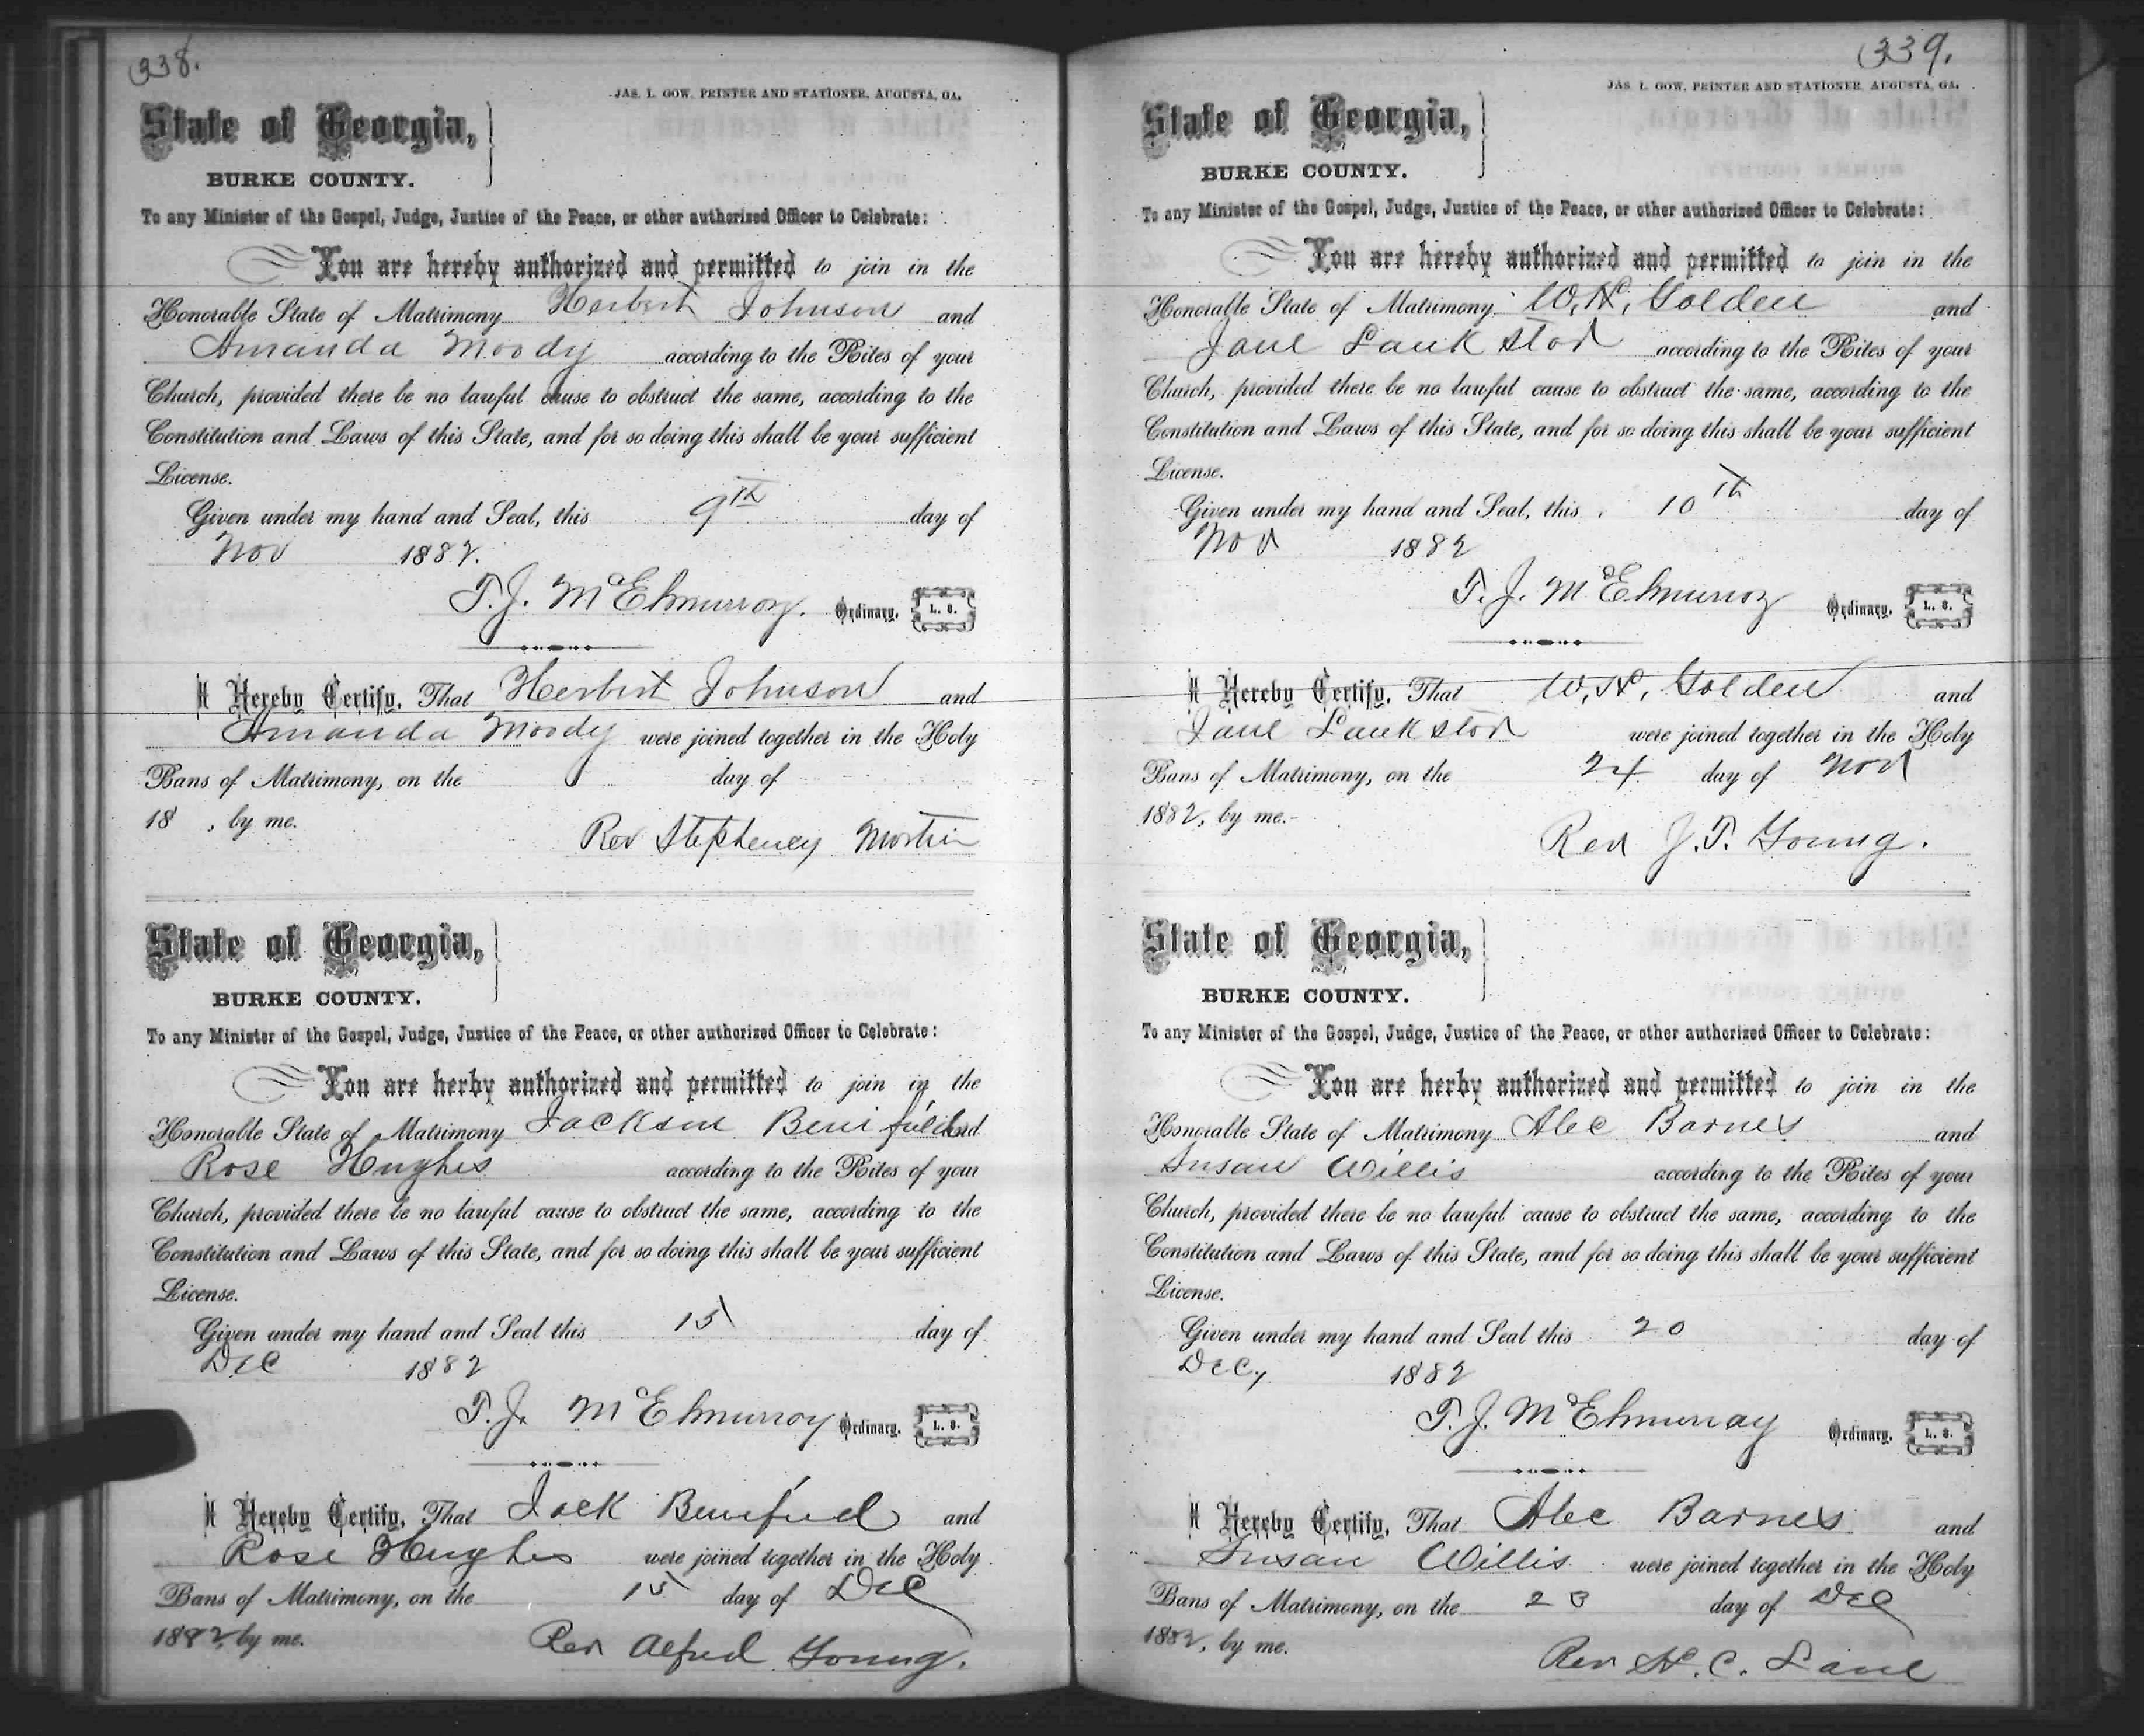 338.
JAS. L. GOW, PRINTER AND STATIONER, AUGUSTA, GA.
State of Georgia,
BURKE COUNTY.
To any Minister of the Gospel, Judge, Justice of the Peace, or other authorized Officer to Celebrate:
You are hereby authorized and permitted to join in the
Honorable State of Matrimony Herbert Johnson and
Amanda Moody according to the Rites of your
Church, provided there be no lawful cause to obstruct the same, according to the
Constitution and Laws of this State, and for so doing this shall be your sufficient
License.
Given under my hand and Seal, this 9th day of
Nov 1882.
T. J. McElmurray. Ordinary. L. S.
I Hereby Certify, That Herbert Johnson and
Amanda Moody were joined together in the Holy
Bans of Matrimony, on the day of
18 , by me.
Rev Stepheney Mortin
State of Georgia,
BURKE COUNTY.
To any Minister of the Gospel, Judge, Justice of the Peace, or other authorized Officer to Celebrate:
You are herby authorized and permitted to join in the
Honorable State of Matrimony Jackson Benifield and
Rose Hughes according to the Rites of your
Church, provided there be no lawful cause to obstruct the same, according to the
Constitution and Laws of this State, and for so doing this shall be your sufficient
License.
Given under my hand and Seal this 15 day of
Dec 1882
T. J. McElmurray Ordinary. L. S.
I Hereby Certify, That Jack Benifield and
Rose Hughes were joined together in the Holy
Bans of Matrimony, on the 15 day of Dec
1882, by me.
Rev Alfred Young.
339.
JAS. L. GOW, PRINTER AND STATIONER, AUGUSTA, GA.
State of Georgia,
BURKE COUNTY.
To any Minister of the Gospel, Judge, Justice of the Peace, or other authorized Officer to Celebrate:
You are hereby authorized and permitted to join in the
Honorable State of Matrimony W. H. Golden and
Jane Lankstod according to the Rites of your
Church, provided there be no lawful cause to obstruct the same, according to the
Constitution and Laws of this State, and for so doing this shall be your sufficient
License.
Given under my hand and Seal, this 10th day of
Nov 1882
T. J. McElmurray Ordinary. L. S.
I Hereby Certify, That W. H. Golden and
Jane Lankstod were joined together in the Holy
Bans of Matrimony, on the 24 day of Nov
1882, by me.
Rev J. T. Young.
State of Georgia,
BURKE COUNTY.
To any Minister of the Gospel, Judge, Justice of the Peace, or other authorized Officer to Celebrate:
You are herby authorized and permitted to join in the
Honorable State of Matrimony Alec Barnes and
Susan Willis according to the Rites of your
Church, provided there be no lawful cause to obstruct the same, according to the
Constitution and Laws of this State, and for so doing this shall be your sufficient
License.
Given under my hand and Seal this 20 day of
Dec, 1882
T. J. McElmurray Ordinary. L. S.
I Hereby Certify, That Alec Barnes and
Susan Willis were joined together in the Holy
Bans of Matrimony, on the 23 day of Dec
1882, by me.
Rev H. C. Lane